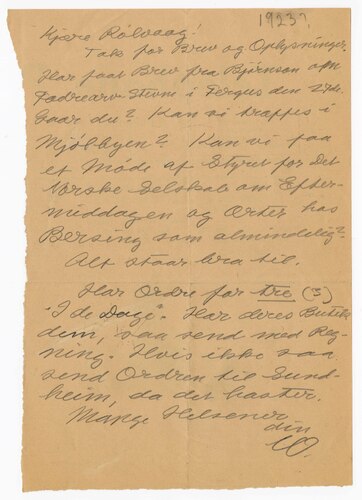 1923?
Kjære Rölvaag!
Tak for Brev og Oplysninger.
Har faat Brev fra Björnson om
Fædrearv Stevne i Fergus den 27de.
Gaar du? Kan vi træffes i
Mjölbyen? Kan vi faa
et Möde af Styret for Det
Norske Selskab om Efter-
middagen og Orter hos
Bersing som almindelig?
Alt staar bra til.
Har Ordre for tre (3)
"I de Dage". Har deres Butik
dem, saa send med Reg-
ning. Hvis ikke saa
send Ordren til Sund-
heim, da det haster.
Mange Helsener
din